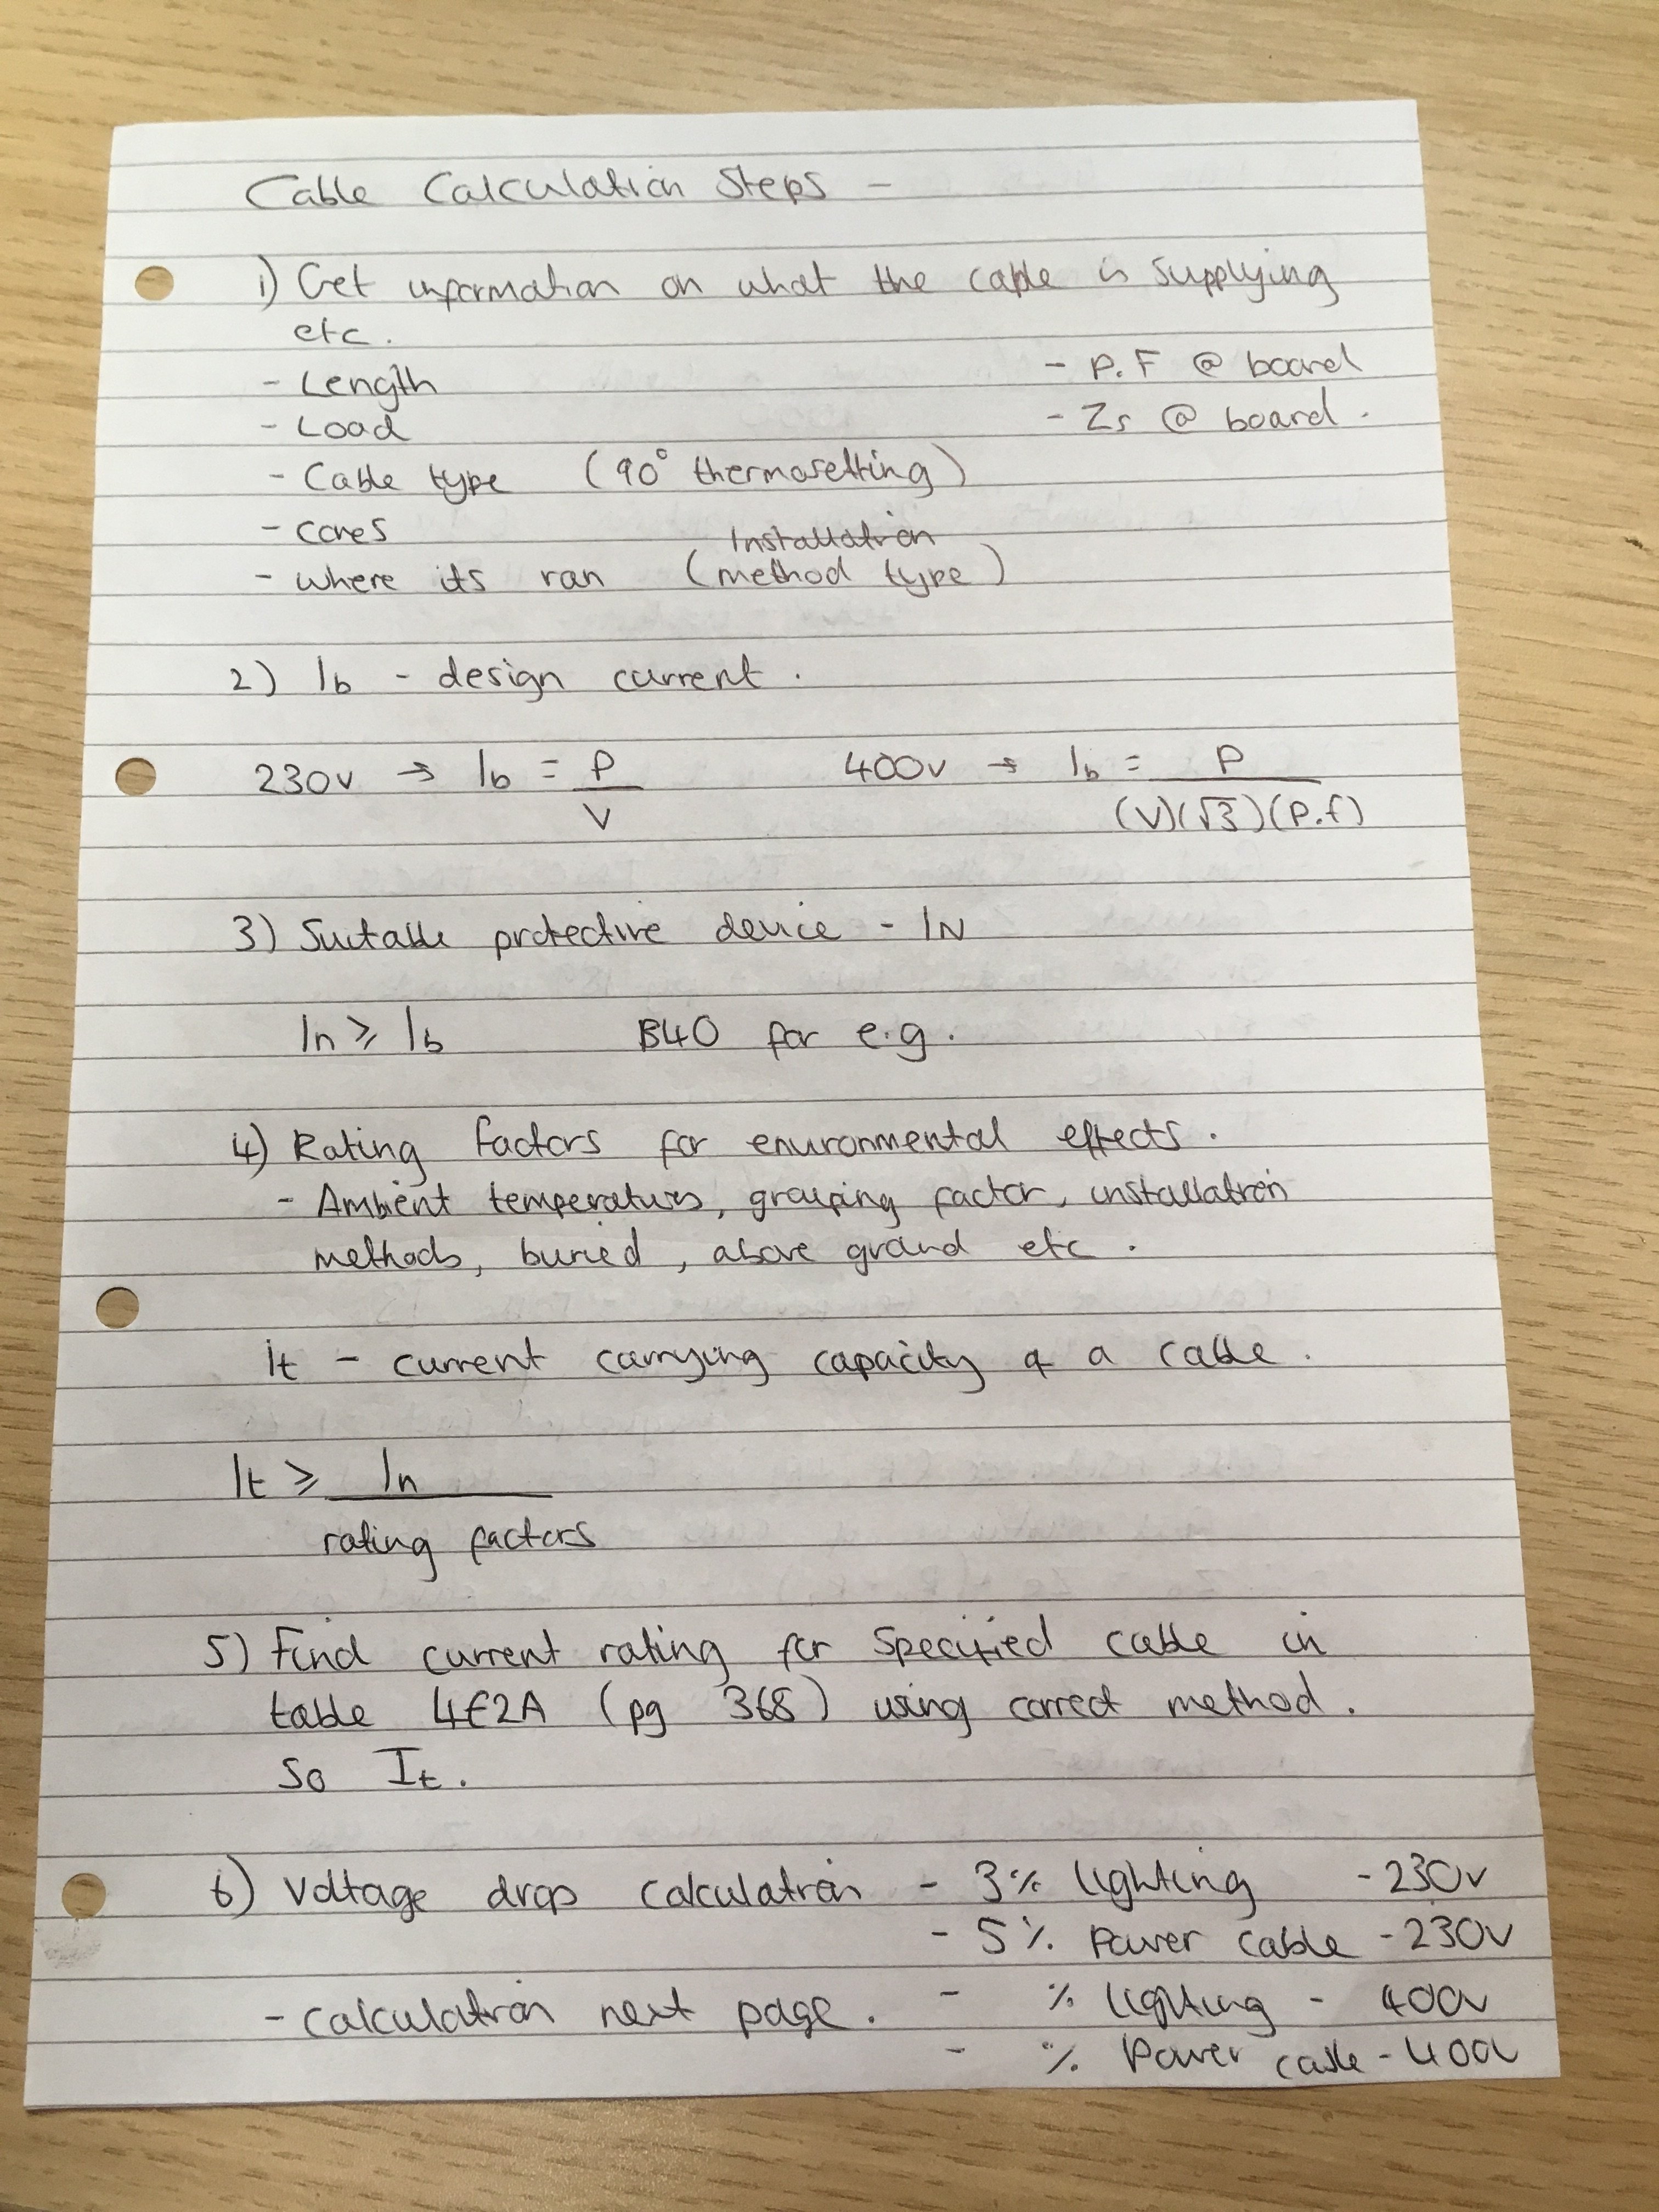 Cable Calculation Steps -
1) Get information on what the cable is supplying
etc.
- Length
- P.F @ board
- Load
- Zs @ board.
- Cable type (90° thermosetting)
- cores
Installation
- where its ran (method type)
2) Ib - design current.
230v → Ib = P/V 400v → Ib = P/(V)(√3)(P.f)
3) Suitable protective device - IN
In ≥ Ib B40 for e.g.
4) Rating factors for environmental effects.
- Ambient temperatures, grouping factor, installation
methods, buried, above ground etc.
It - current carrying capacity of a cable.
It ≥ In
rating factors
5) Find current rating for specified cable in
table 4E2A (pg 368) using correct method.
So It.
6) Voltage drop calculation - 3% lighting - 230v
- 5% Power cable - 230v
- calculation next page. - % lighting - 400v
- % Power cable - 400v